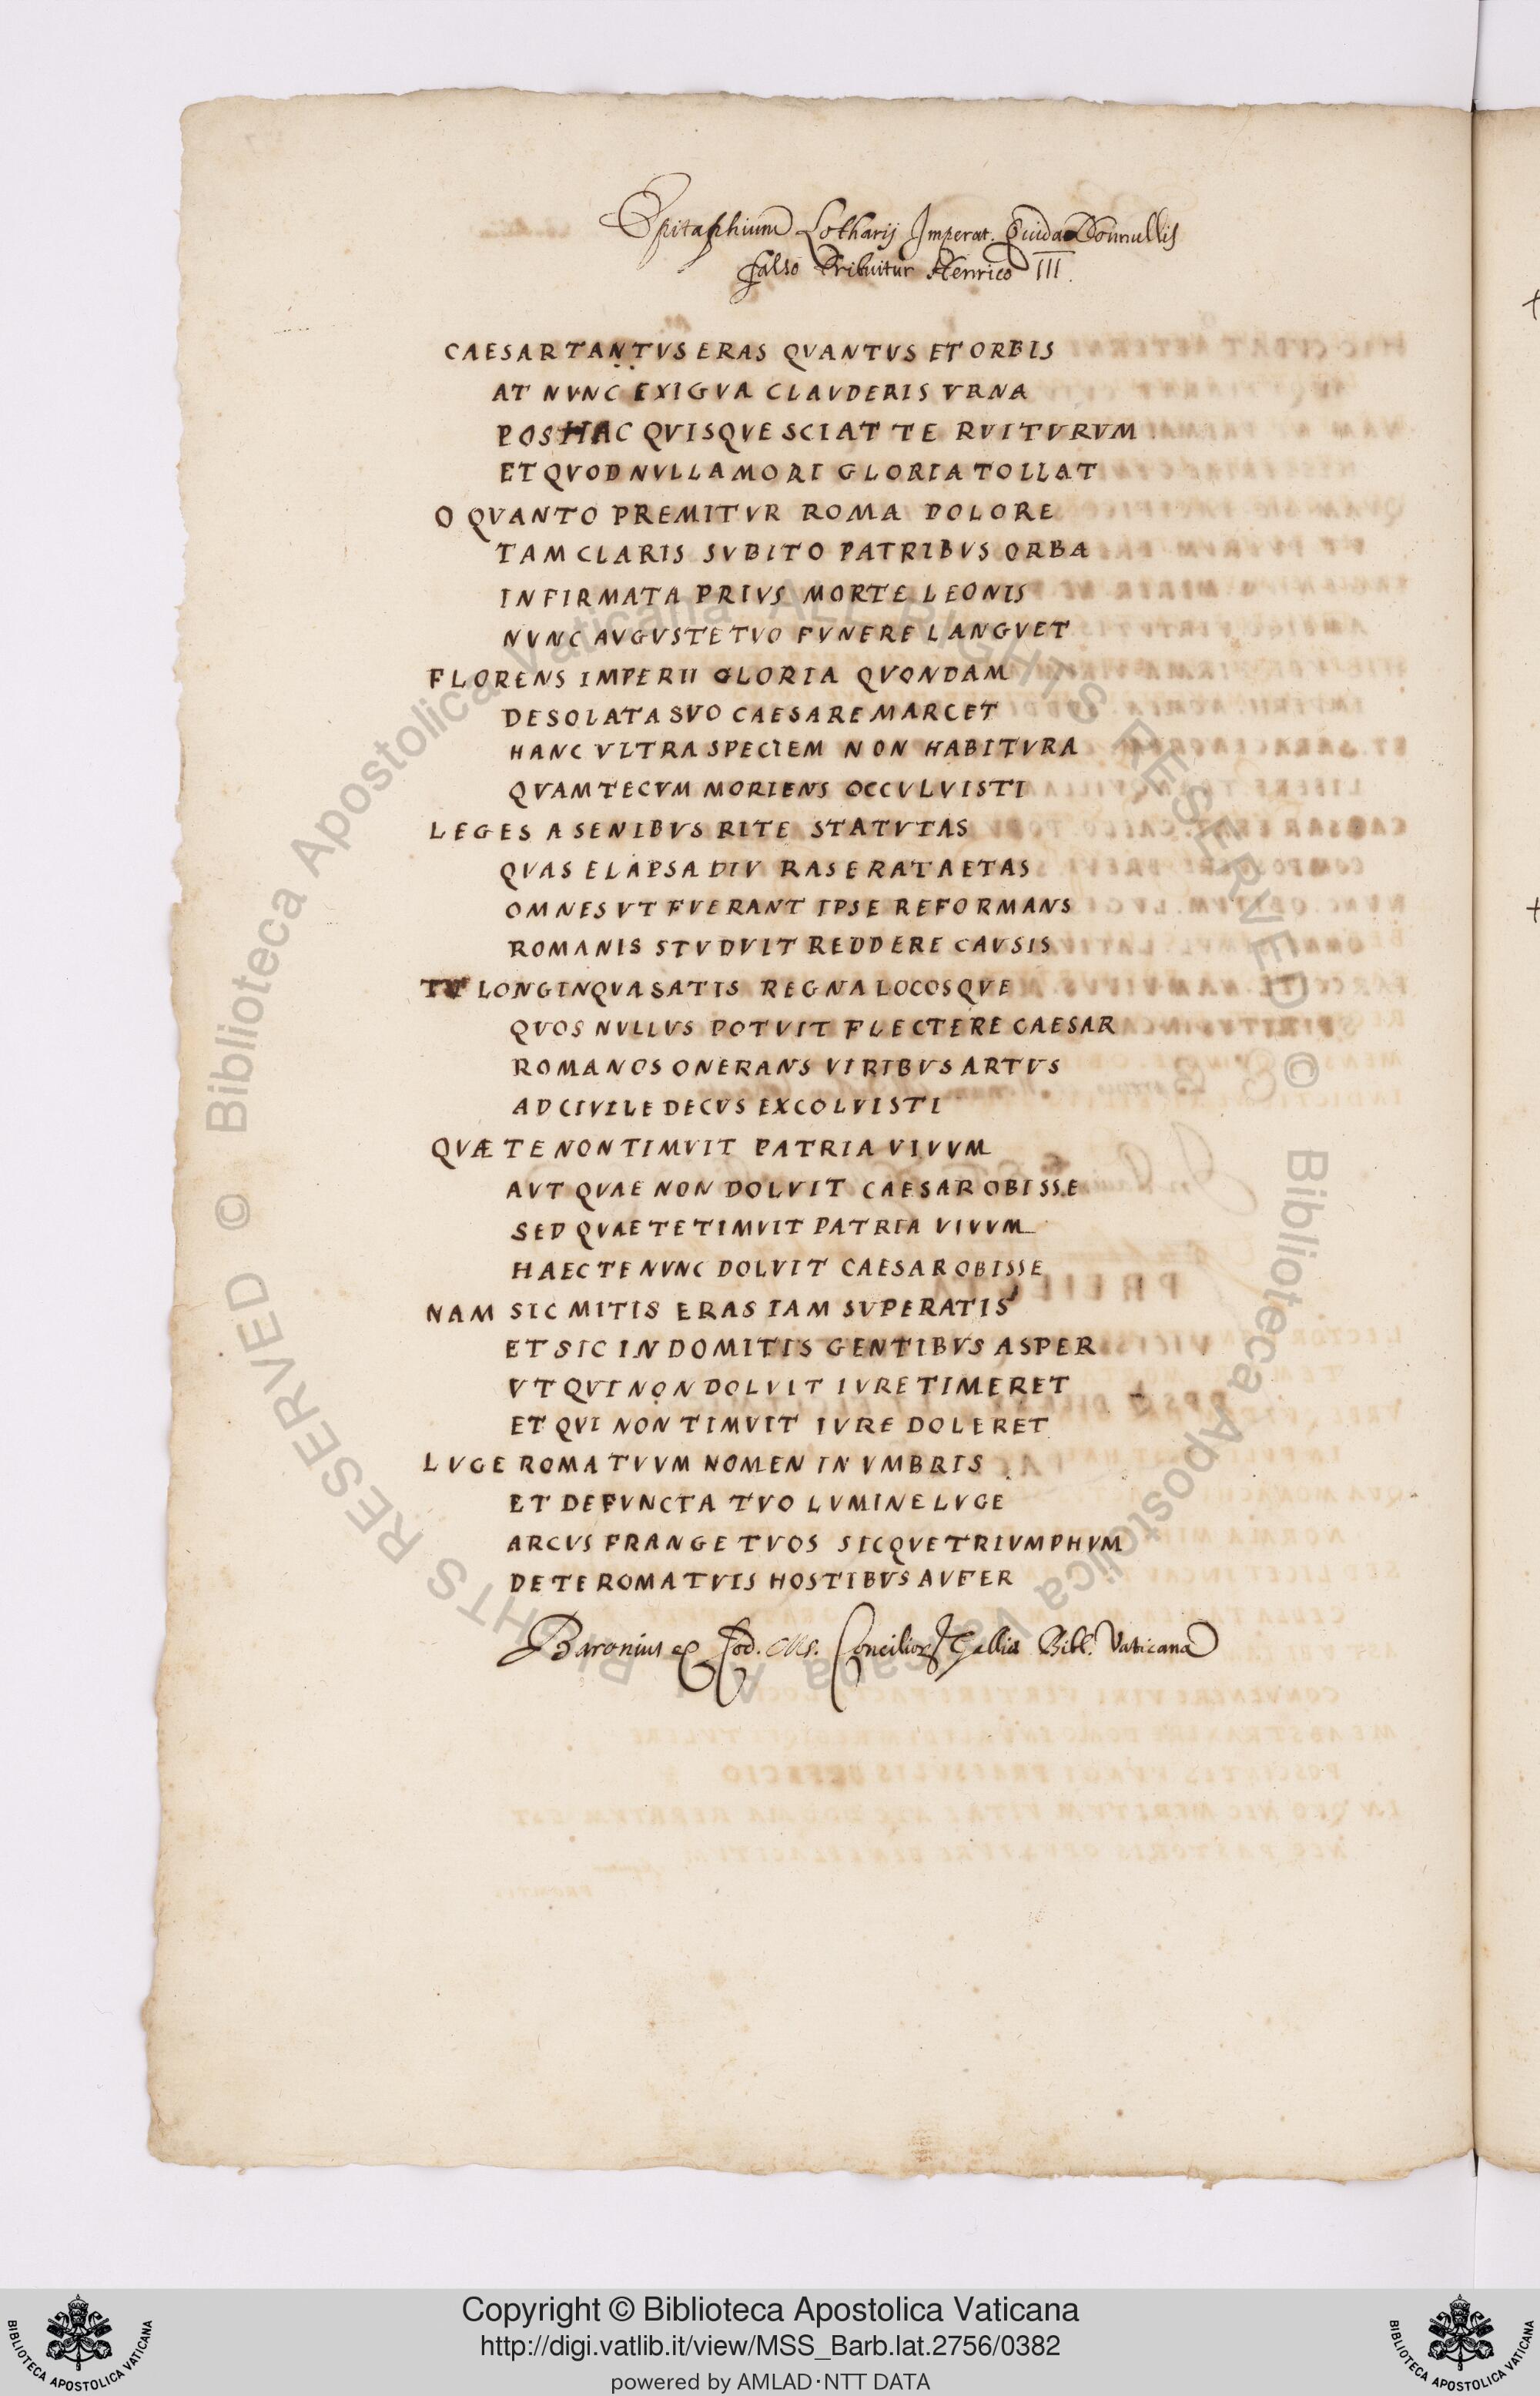 Epitaphium Lotharij Imperat. Quod a Nonnullis
falso tribuitur Henrico III.
CAESAR TANTVS ERAS QVANTVS ET ORBIS
AT NVNC EXIGVA CLAVDERIS VRNA
POST HAC QVISQVE SCIAT TE RVITVRVM
ET QVOD NVLLA MORI GLORIA TOLLAT
O QVANTO PREMITVR ROMA DOLORE
TAM CLARIS SVBITO PATRIBVS ORBA
INFIRMATA PRIVS MORTE LEONIS
NVNC AVGVSTE TVO FVNERE LANGVET
FLORENS IMPERII GLORIA QVONDAM
DESOLATA SVO CAESARE MARCET
HANC VLTRA SPECIEM NON HABITVRA
QVAM TECVM MORIENS OCCVLVISTI
LEGES A SENIBVS RITE STATVTAS
QVAS ELAPSA DIV RASERAT AETAS
OMNES VT FVERANT IPSE REFORMANS
ROMANIS STVDVIT REDDERE CAVSIS
TV LONGINQVA SATIS REGNA LOCOSQVE
QVOS NVLLVS POTVIT FLECTERE CAESAR
ROMANOS ONERANS VIRIBVS ARTVS
AD CIVILE DECVS EXCOLVISTI
QVÆ TE NON TIMVIT PATRIA VIVVM
AVT QVAE NON DOLVIT CAESAR OBISSE
SED QVAE TE TIMVIT PATRIA VIVVM
HAEC TE NVNC DOLVIT CAESAR OBISSE
NAM SIC MITIS ERAS IAM SVPERATIS
ET SIC INDOMITIS GENTIBVS ASPER
VT QVI NON DOLVIT IVRE TIMERET
ET QVI NON TIMVIT IVRE DOLERET
LVGE ROMA TVVM NOMEN IN VMBRIS
ET DEFVNCTA TVO LVMINE LVGE
ARCVS FRANGE TVOS SICQVE TRIVMPHVM
DE TE ROMA TVIS HOSTIBVS AVFER
Baronius ex Cod. Ms. Gallia Bibl. Vaticana
Copyright © Biblioteca Apostolica Vaticana
http://digi.vatlib.it/view/MSS_Barb.lat.2756/0382
powered by AMLAD·NTT DATA